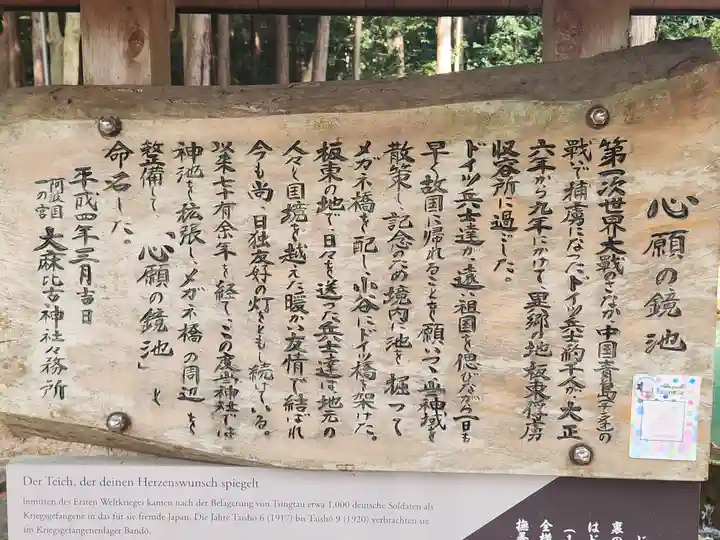 心願の鏡池
第一次世界大戦のさなか、中国青島での
戦で捕虜になったドイツ兵士約千人が大正
六年から九年にかけて異郷の地板東俘虜
収容所に過ごした。
ドイツ兵士達が、遠い祖国を偲びながら一日も
早く故国に帰れることを願いつつ此神域を
散策し、記念のため境内に池を掘って
メガネ橋を配し、小谷にドイツ橋を架けた。
板東の地で、日々を送った兵士達は、地元の
人々と国境を越えた暖かい友情で結ばれ
今も尚、日独友好の灯をともし続けている。
以来七十有余年を経て、この度当神社では
神池を拡張し、メガネ橋の周辺を
整備し、「心願の鏡池」と
命名した。
平成四年三月吉日
阿波国一の宮 大麻比古神社々務所
Der Teich, der deinen Herzenswunsch spiegelt
Inmitten des Ersten Weltkrieges kamen nach der Belagerung von Tsingtau etwa 1.000 deutsche Soldaten als
Kriegsgefangene in das für sie fremde Japan. Die Jahre Taishō 6 (1917) bis Taishō 9 (1920) verbrachten sie
im Kriegsgefangenenlager Bandō.